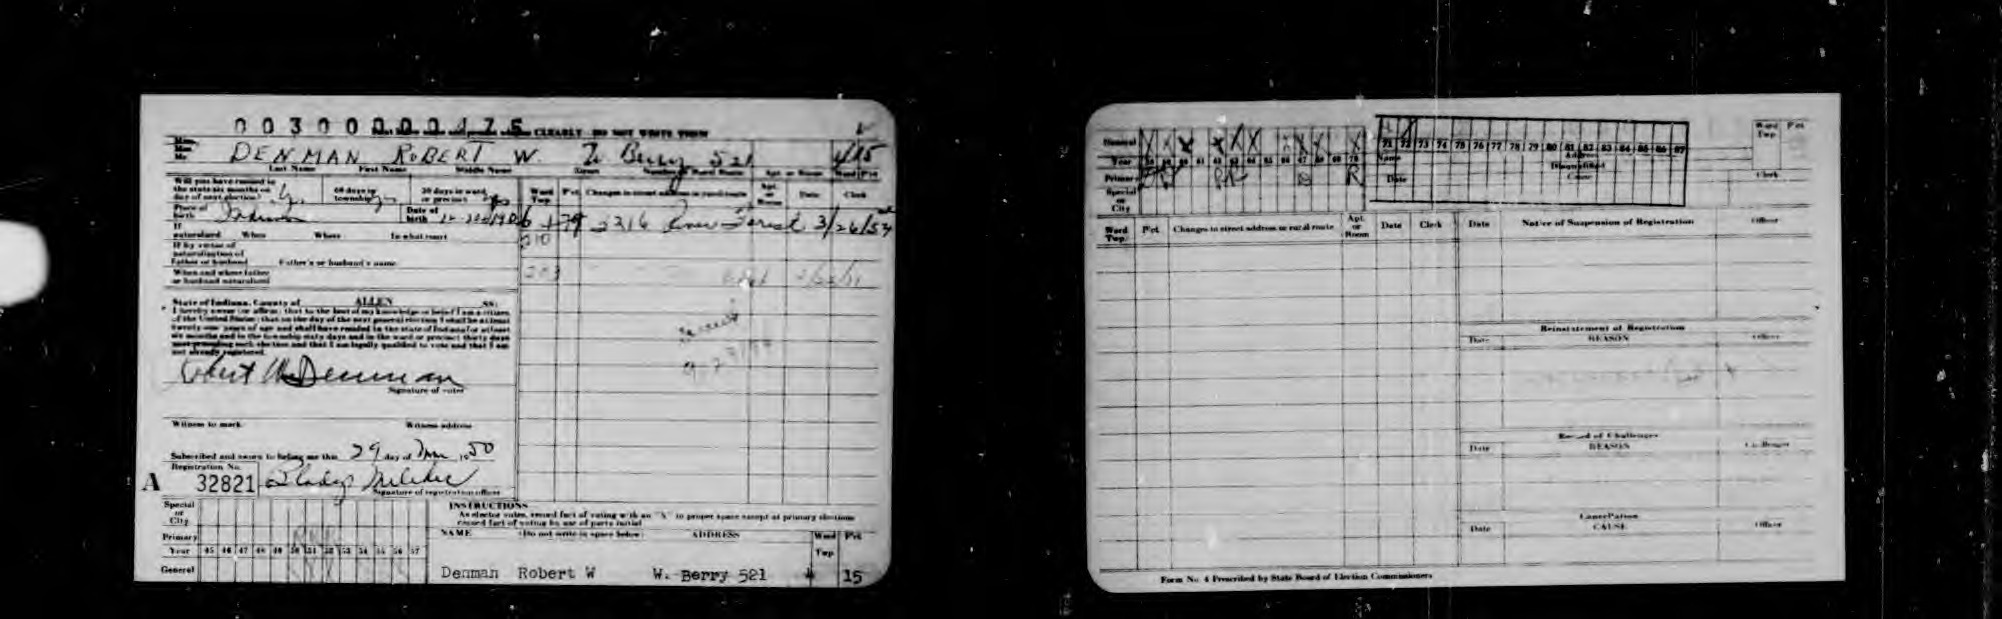 0030000 0175 CLEARLY - DO NOT WRITE THEM
Mrs.
Miss
Mr. DENMAN ROBERT W. W Berry 521 4/15
Last Name First Name Middle Name Street Number or Rural Route Apt. or Room Ward Pct
Will you have resided in
the state six months on
day of next election? 60 days in
township? 30 days in ward
or precinct?
Place of
birth Indiana Date of
birth
If
naturalized When Where In what court
If by virtue of
naturalization of
Father or husband Father's or husband's name
When and where father
or husband naturalized
Ward
Twp Pct. Changes in street address or rural route Apt.
or
Room Date Clerk
3316 Forest 3/26/57
210
203
State of Indiana, County of ALLEN SS:
I hereby swear (or affirm) that to the best of my knowledge or belief I am a citizen
of the United States; that on the day of the next general election I shall be at least
twenty-one years of age and shall have resided in the state of Indiana for at least
six months and in the township sixty days and in the ward or precinct thirty days
next preceding such election and that I am legally qualified to vote and that I am
not already registered.
Robert W Denman
Signature of voter
Witness to mark Witness address
Subscribed and sworn to before me this 29 day of Mar 1950
Registration No.
A 32821 Gladys
Signature of registration officer
Special
or
City
Primary
Year 45 46 47 48 49 50 51 52 53 54 55 56 57
General
INSTRUCTIONS
As elector votes, record fact of voting with an "X" in proper space except at primary elections
record fact of voting by use of party initial
NAME (Do not write in space below) ADDRESS Ward
Twp Pct.
Denman Robert W W. Berry 521 4 15
General X X X X X X X X X X
Year 58 59 60 61 62 63 64 65 66 67 68 69 70
Primary R R R R
Special
or
City
71 72 73 74 75 76 77 78 79 80 81 82 83 84 85 86 87
Name Address
Disqualified
Date Cause
Ward
Twp Pct
Clerk
Ward
Twp. Pct. Changes to street address or rural route Apt.
or
Room Date Clerk Date Notice of Suspension of Registration Officer
Reinstatement of Registration
Date REASON Officer
Record of Challenges
Date REASON Challenger
Cancellation
Date CAUSE Officer
Form No. 4 Prescribed by State Board of Election Commissioners